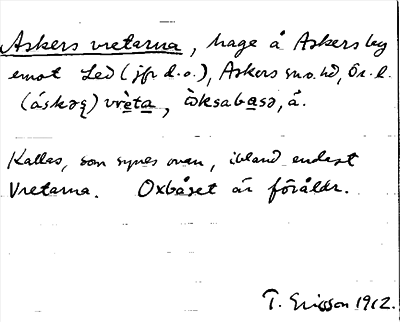 Askers vretarna, hage å Askersby
emot Led (jfr d.o.), Askers sn o. hd, Ör. l.
(áskəʂ) vrè̱ta̱, ò̱ksaba̱sə, å.
Kallas, som synes ovan, ibland endast
Vretarna. Oxbåset är föråldr.
T. Ericsson 1912.